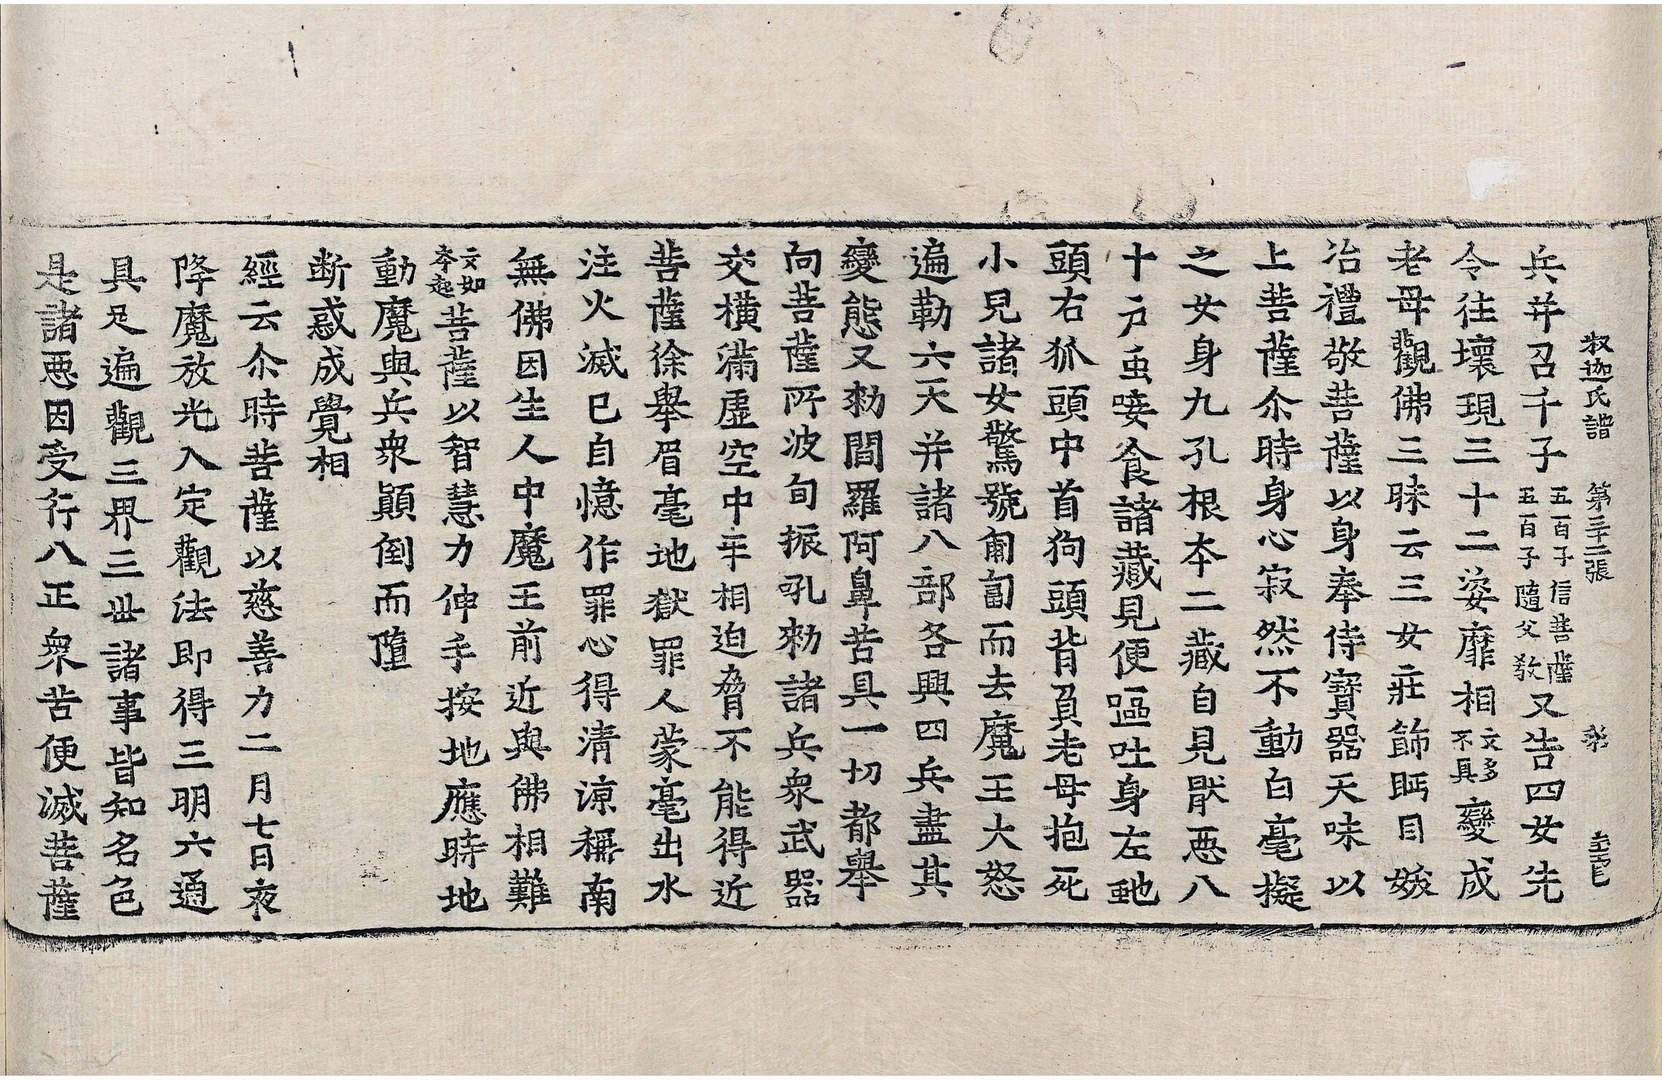 释迦氏譜 第三十二張
兵并召千子五百子信菩薩五百子隨父教又告四女先
令往壞現三十二姿靡相文多不具變成
老母觀佛三昧云三女莊飾眄目娞
冶禮敬菩薩以身奉侍寶器天味以
上菩薩尒時身心寂然不動白毫擬
之女身九孔根本二藏自見猒悪八
十户虫唼食諸藏見便嘔吐身左虵
頭右狐頭中首狗頭背負老母抱死
小兒諸女驚號匍匐而去魔王大怒
遍勒六天并諸八部各興四兵盡其
變態又勑閻羅阿鼻苦具一切都舉
向菩薩所波旬振吼勑諸兵衆武器
交橫滿虛空中主相迫脅不能得近
菩薩徐舉眉毫地獄罪人蒙毫出水
注火滅已自憶作罪心得清涼稱南
無佛因生人中魔王前近與佛相難
文如本起菩薩以智慧力伸手按地應時地
動魔與兵衆顛倒而墮
断惑成覺相
經云尒時菩薩以慈善力二月七日夜
降魔放光入定觀法即得三明六通
具足遍觀三界三世諸事皆知名色
是諸悪因受行八正衆苦便滅菩薩